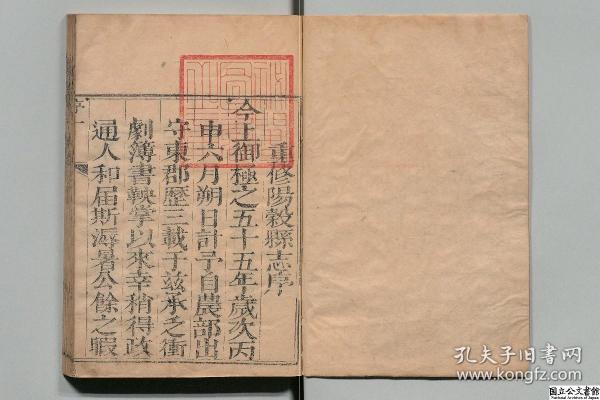 重修陽穀縣志序
今上御極之五十五年歲次丙
申六月朔日計予自農部出
守東郡歷三載于茲承乏衝
劇簿書鞅掌以來幸稍得政
通人和屆斯溽暑公餘之暇
序一
孔夫子旧书网
www.kongfz.com
国立公文書館
National Archives of Japan